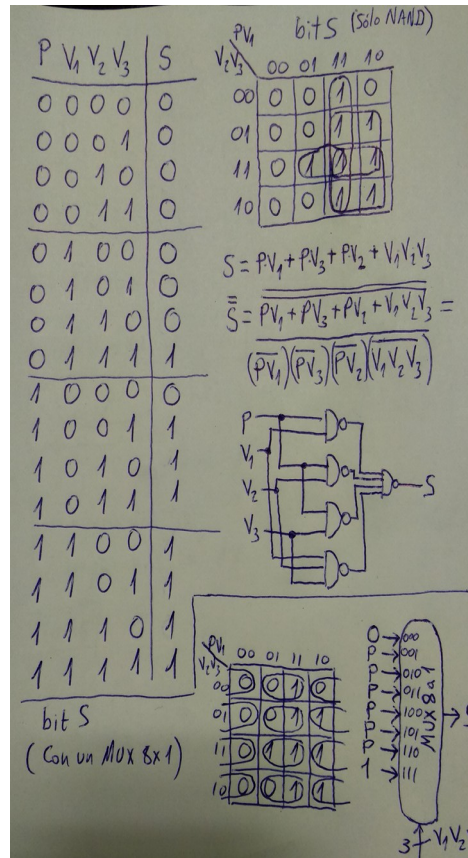 P V₁ V₂ V₃ S
0 0 0 0 0
0 0 0 1 0
0 0 1 0 0
0 0 1 1 0
0 1 0 0 0
0 1 0 1 0
0 1 1 0 0
0 1 1 1 1
1 0 0 0 0
1 0 0 1 1
1 0 1 0 1
1 0 1 1 1
1 1 0 0 1
1 1 0 1 1
1 1 1 0 1
1 1 1 1 1
bit S
(Con un MUX 8x1)
bit S (Sólo NAND)
PV₁
V₂V₃ 00 01 11 10
00 0 0 1 0
01 0 0 1 1
11 0 1 1 1
10 0 0 1 1
S = P·V₁ + P·V₃ + P·V₂ + V₁V₂V₃
S̿ = \overline{\overline{PV₁ + PV₃ + PV₂ + V₁V₂V₃}} =
\overline{(\overline{PV₁})(\overline{PV₃})(\overline{PV₂})(\overline{V₁V₂V₃})}
P
V₁
V₂
V₃
S
PV₁
V₂V₃ 00 01 11 10
00 0 0 1 0
01 0 0 1 1
11 0 1 1 1
10 0 0 1 1
0 000
P 001
P 010
P 011
P 100
P 101
P 110
1 111
MUX 8x1
3 V₁V₂